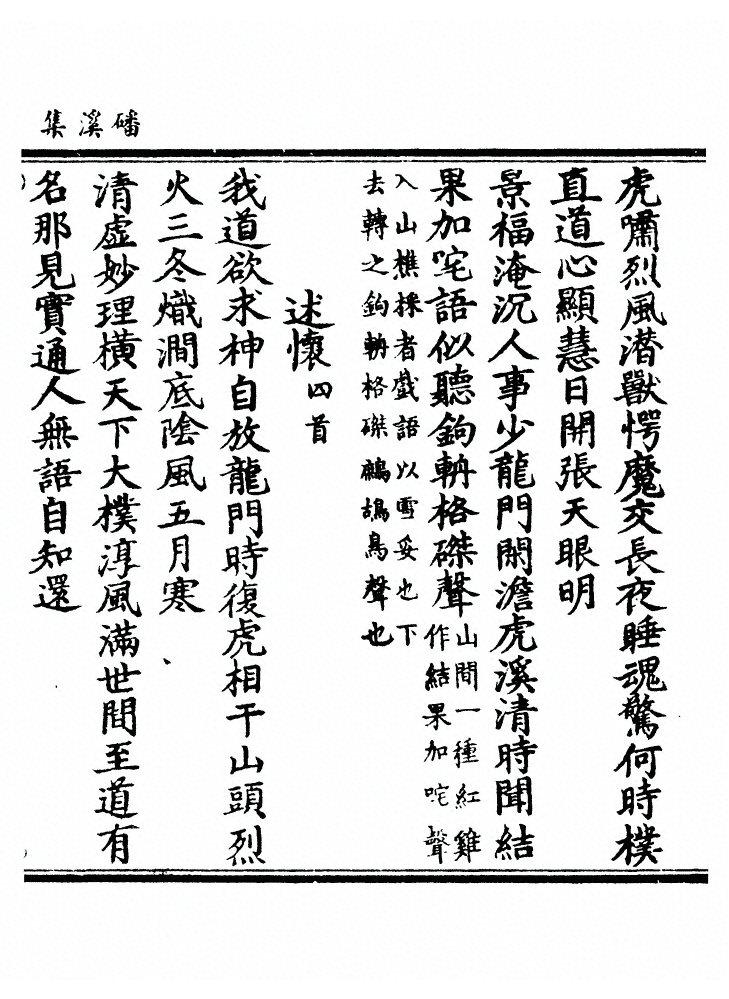 磻溪集
虎嘯烈風潜獸愕魔交長夜睡魂驚何時樸
直道心顯慧日開張天眼明
景福淹沉人事少龍門閑澹虎溪清時聞結
果加咤語似聽鉤輈格磔聲山間一種紅雞作結果加咤聲
入山樵採者戲語以雪妥也下去轉之鉤輈格磔鷓鴣鳥聲也
述懷四首
我道欲求神自放龍門時復虎相干山頭烈
火三冬熾澗底陰風五月寒
清虛妙理横天下大樸淳風滿世間至道有
名那見實通人無語自知還